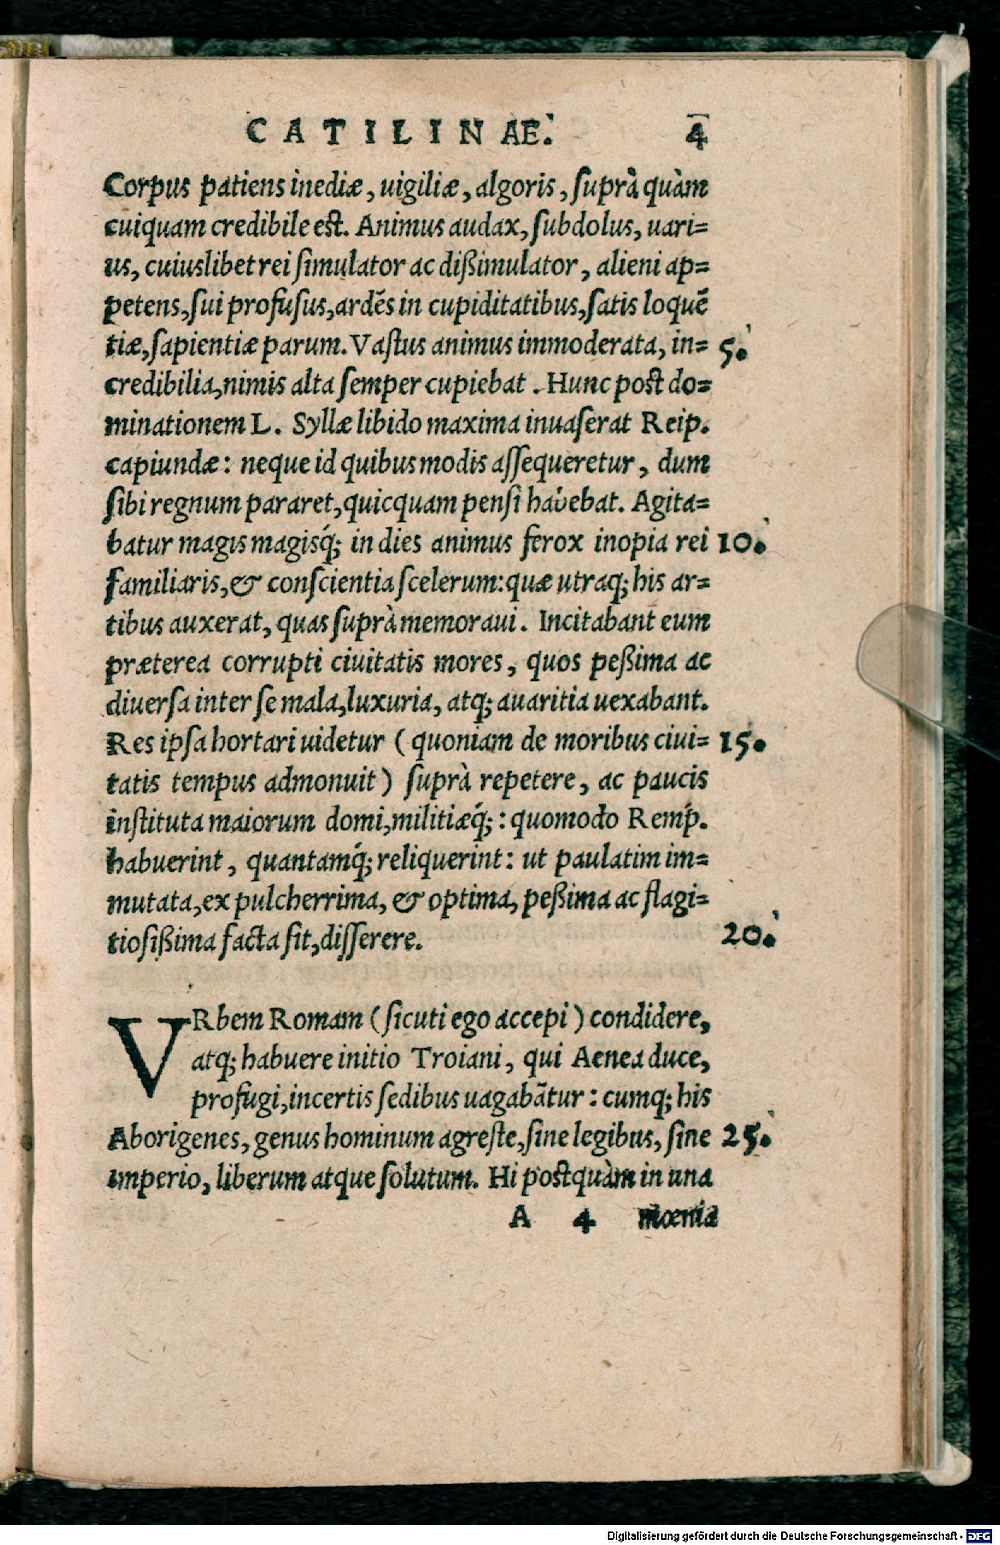 CATILINAE. 4
Corpus patiens inediæ, uigiliæ, algoris, suprà quàm
cuiquam credibile est. Animus audax, subdolus, uari=
us, cuiuslibet rei simulator ac dißimulator, alieni ap=
petens, sui profusus, ardēs in cupiditatibus, satis loquē
tiæ, sapientiæ parum. Vastus animus immoderata, in= 5.
credibilia, nimis alta semper cupiebat. Hunc post do=
minationem L. Syllæ libido maxima inuaserat Reip.
capiundæ: neque id quibus modis assequeretur, dum
sibi regnum pararet, quicquam pensi habebat. Agita=
batur magis magisq́; in dies animus ferox inopia rei 10.
familiaris, & conscientia scelerum: quæ utraq; his ar=
tibus auxerat, quas suprà memoraui. Incitabant eum
præterea corrupti ciuitatis mores, quos peßima ac
diuersa inter se mala, luxuria, atq; auaritia uexabant.
Res ipsa hortari uidetur (quoniam de moribus ciui= 15.
tatis tempus admonuit) suprà repetere, ac paucis
instituta maiorum domi, militiæq́;: quomodo Remṕ.
habuerint, quantamq́; reliquerint: ut paulatim im=
mutata, ex pulcherrima, & optima, peßima ac flagi=
tiosißima facta sit, disserere. 20.
VRbem Romam (sicuti ego accepi) condidere,
atq; habuere initio Troiani, qui Aenea duce,
profugi, incertis sedibus uagabātur: cumq; his
Aborigenes, genus hominum agreste, sine legibus, sine 25.
imperio, liberum atque solutum. Hi postquàm in una
A 4 mœnia
Digitalisierung gefördert durch die Deutsche Forschungsgemeinschaft - DFG